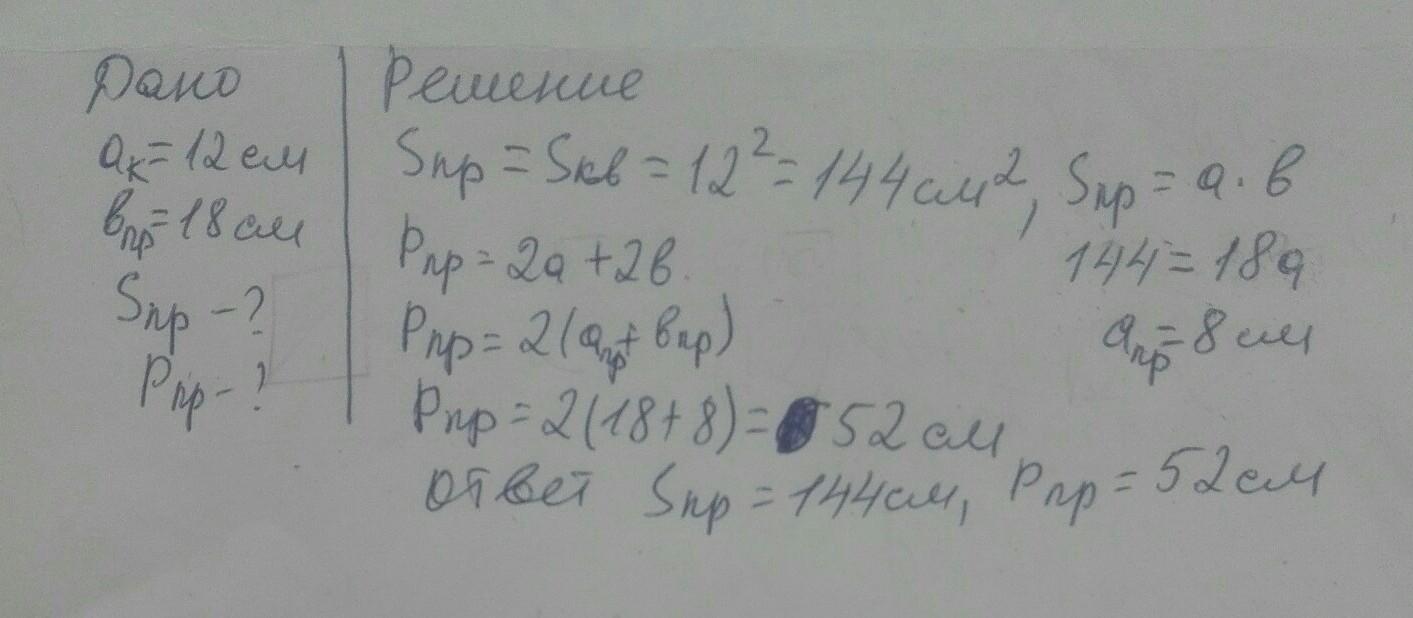 Дано
aк=12см
bпр=18см
Sпр-?
Pпр-?
Решение
Sпр=Sкв=12²=144см², Sпр=a·b
Pпр=2a+2b.
144=18a
Pпр=2(aпр+bпр)
aпр=8см
Pпр=2(18+8)=52см
ответ Sпр=144см, Pпр=52см